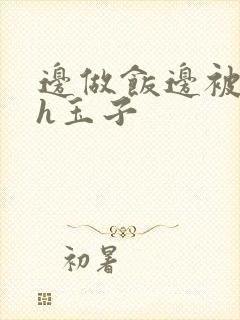 邊做飯邊被
h玉子
初暑